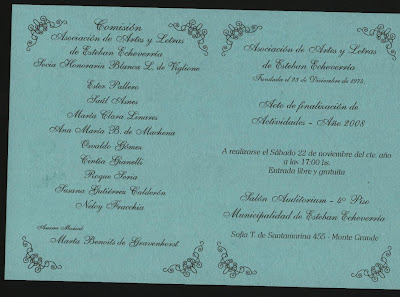 Comisión
Asociación de Artes y Letras
de Esteban Echeverría
Socia Honoraria Blanca L. de Viglione
Ester Pallero
Saúl
María Clara Linares
Ana María B. de
Osvaldo Gómez
Cintia Granelli
Roque Soria
Susana Gutiérrez Calderón
Nelsy Fracchia
Asesora Musical
Marta Benoits de Gravenhorst
Asociación de Artes y Letras
de Esteban Echeverría
Fundada el 23 de Diciembre de 1973.
Acto de finalización de
Actividades - Año 2008
A realizarse el Sábado 22 de noviembre del cte. año
a las 17:00 hs.
Entrada libre y gratuita
Salón Auditorium - 6º Piso
Municipalidad de Esteban Echeverría
Sofía T. de Santamarina 455 - Monte Grande